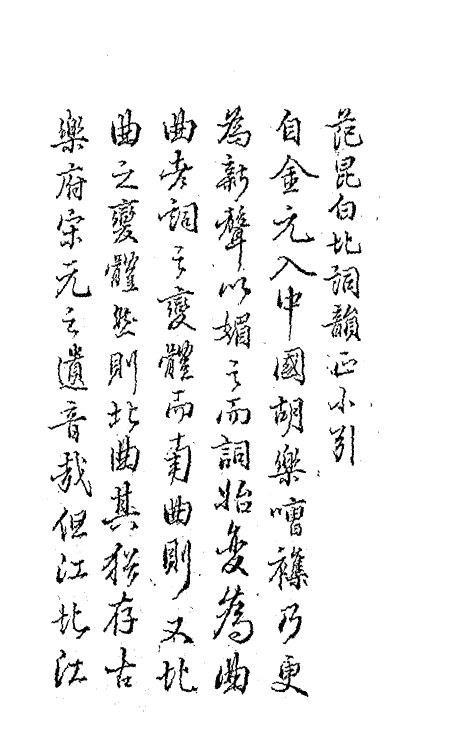 范昆白北詞韻正小引
自金元入中國胡樂嘈襍乃更
為新聲以媚之而詞始变為曲
曲者詞之變體而南曲則又北
曲之變體然則北曲其猶存古
樂府宋元之遺音哉但江北沈